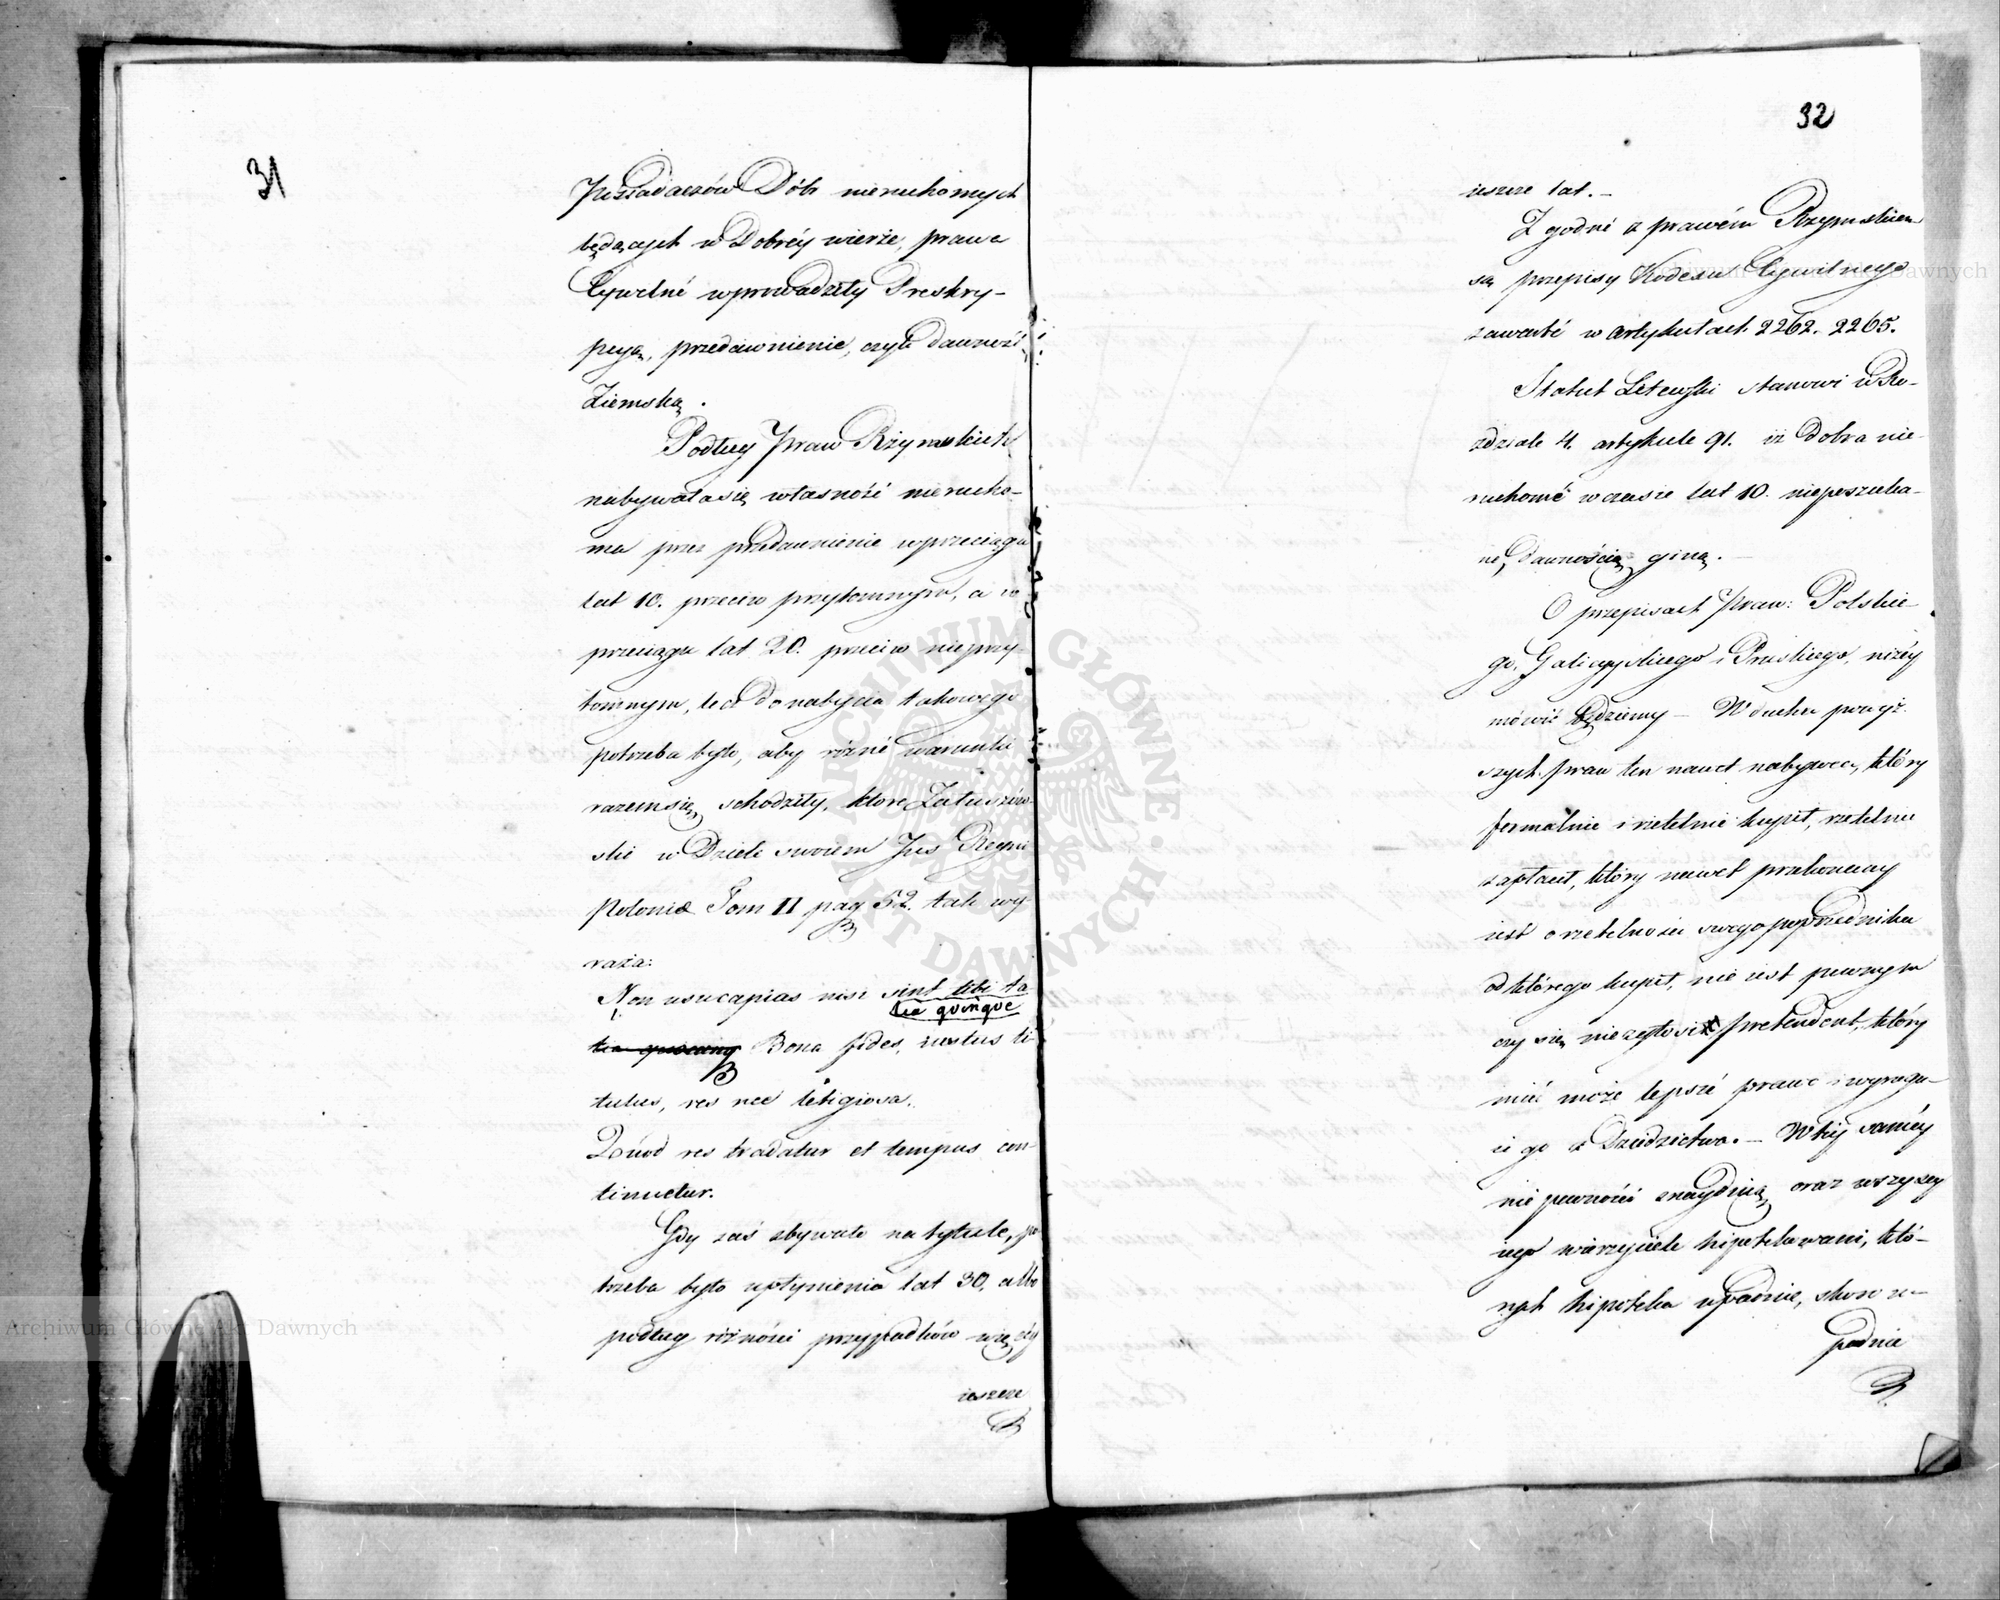 31
Posiadaczów Dóbr nieruchomych
będących w Dobréy wierze, prawa
Cywilné wprowadziły Preskry-
pcyą, przedawnienie, czyli dawność
Ziemską.
Podług Praw Rzymskich
nabywała się własność nierucho-
ma przez przedawnienie w przeciągu
lat 10. przeciw przytomnym, a w
przeciągu lat 20. przeciw nieprzy-
tomnym, lecz do nabycia takowego
potrzeba było, aby różné warunki
razem się schodziły, które Załuszów-
ski w Dziele swoiem Jus Regni
Poloniæ Tom II pag 52. tak wy-
raża:
Non usucapias nisi sint tibi ta
lia quinque
Bona fides, iustus ti-
tulus, res nec litigiosa.
Quod res tradatur et tempus con-
tinuetur.
Gdy zaś zbywało na tytule, po-
trzeba było upłynienia lat 30, albo
podług różności przypadków więcéy
ieszcze
32
ieszcze lat. -
Zgodné z prawém Rzymskiem
są przepisy Kodexu Cywilnego
zawarté w artykułach 2262. 2265.
Statut Litewski stanowi w Ro-
zdziale 4. artykule 91. iż Dobra nie-
ruchomé w czasie lat 10. nieposzuka-
né, dawnością giną. -
O przepisach Praw: Polskie-
go, Galicyyskiego i Pruskiego, niżéy
mówić będziemy - W duchu powyż-
szych praw ten nawet nabywca, który
formalnie i rzetelnie kupił, rzetelnie
zapłacił, który nawet przekonany
iest o rzetelności swego poprzednika
od którego kupił, nie iest pewnym
czy się nie zgłosi pretendent, który
mieć może lepszé prawo i wyrugu-
ie go z Dziedzictwa. - W téy saméy
niepewności znaydują oraz wszyscy
iego wierzyciele hipotekowani, któ-
rych hipoteka upadnie, skoro u-
padnie
ARCHIWUM GŁÓWNE AKT DAWNYCH
Archiwum Główne Akt Dawnych